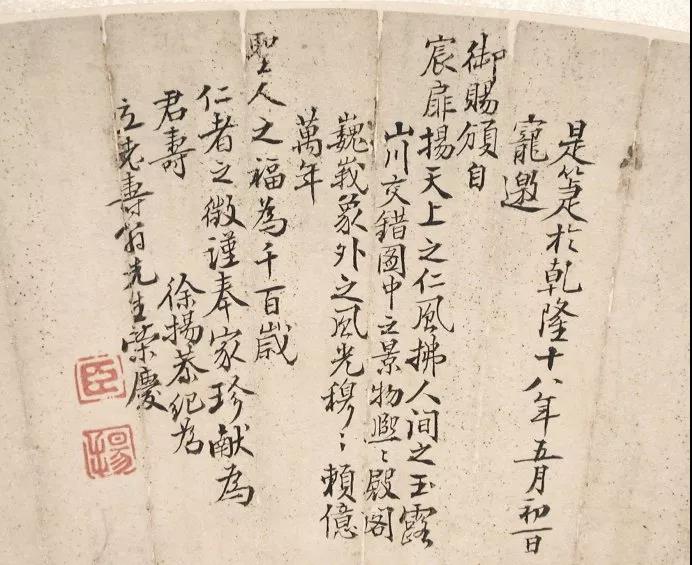 是箑於乾隆十八年五月初一日
寵邀
御賜頒自
宸扉揚天上之仁風拂人间之玉露
山川交錯圖中之景物熙〻殿阁
巍峩象外之風光穆〻頼億
萬年
聖人之福為千百歳
仁者之徵謹奉家珍献為
君壽
徐揚恭纪为
立老壽翁先生榮慶
臣
揚